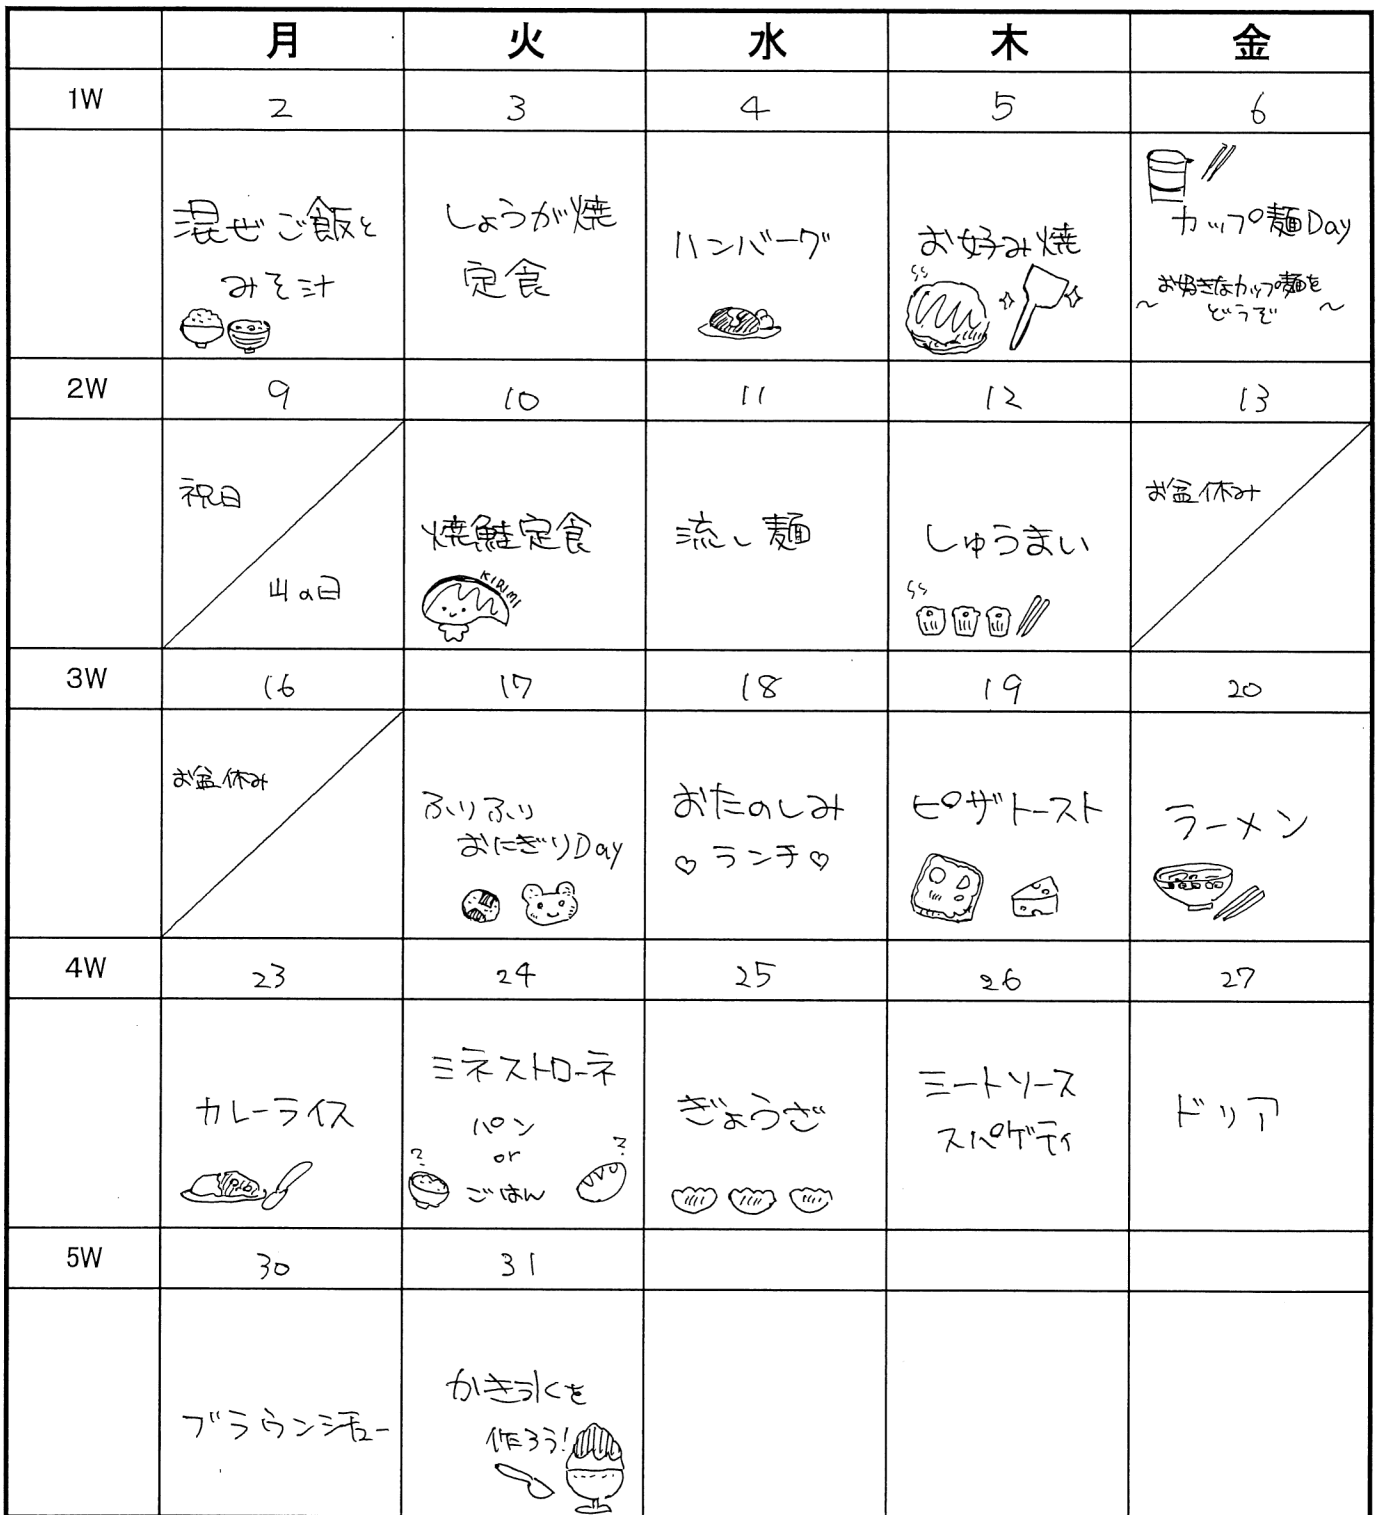 月 火 水 木 金
1W 2 3 4 5 6
混ぜご飯と
みそ汁
しょうが焼
定食
ハンバーグ
お好み焼
カップ麺Day
～お好きなカップ麺を
どうぞ～
2W 9 10 11 12 13
祝日
山の日
焼鮭定食
KIRIMI
流し麺
しゅうまい
お盆休み
3W 16 17 18 19 20
お盆休み
ふりふり
おにぎりDay
おたのしみ
♡ランチ♡
ピザトースト
ラーメン
4W 23 24 25 26 27
カレーライス
ミネストローネ
パン
or
ごはん
? ?
ぎょうざ
ミートソース
スパゲティ
ドリア
5W 30 31
ブラウンシチュー
かき氷を
作ろう!